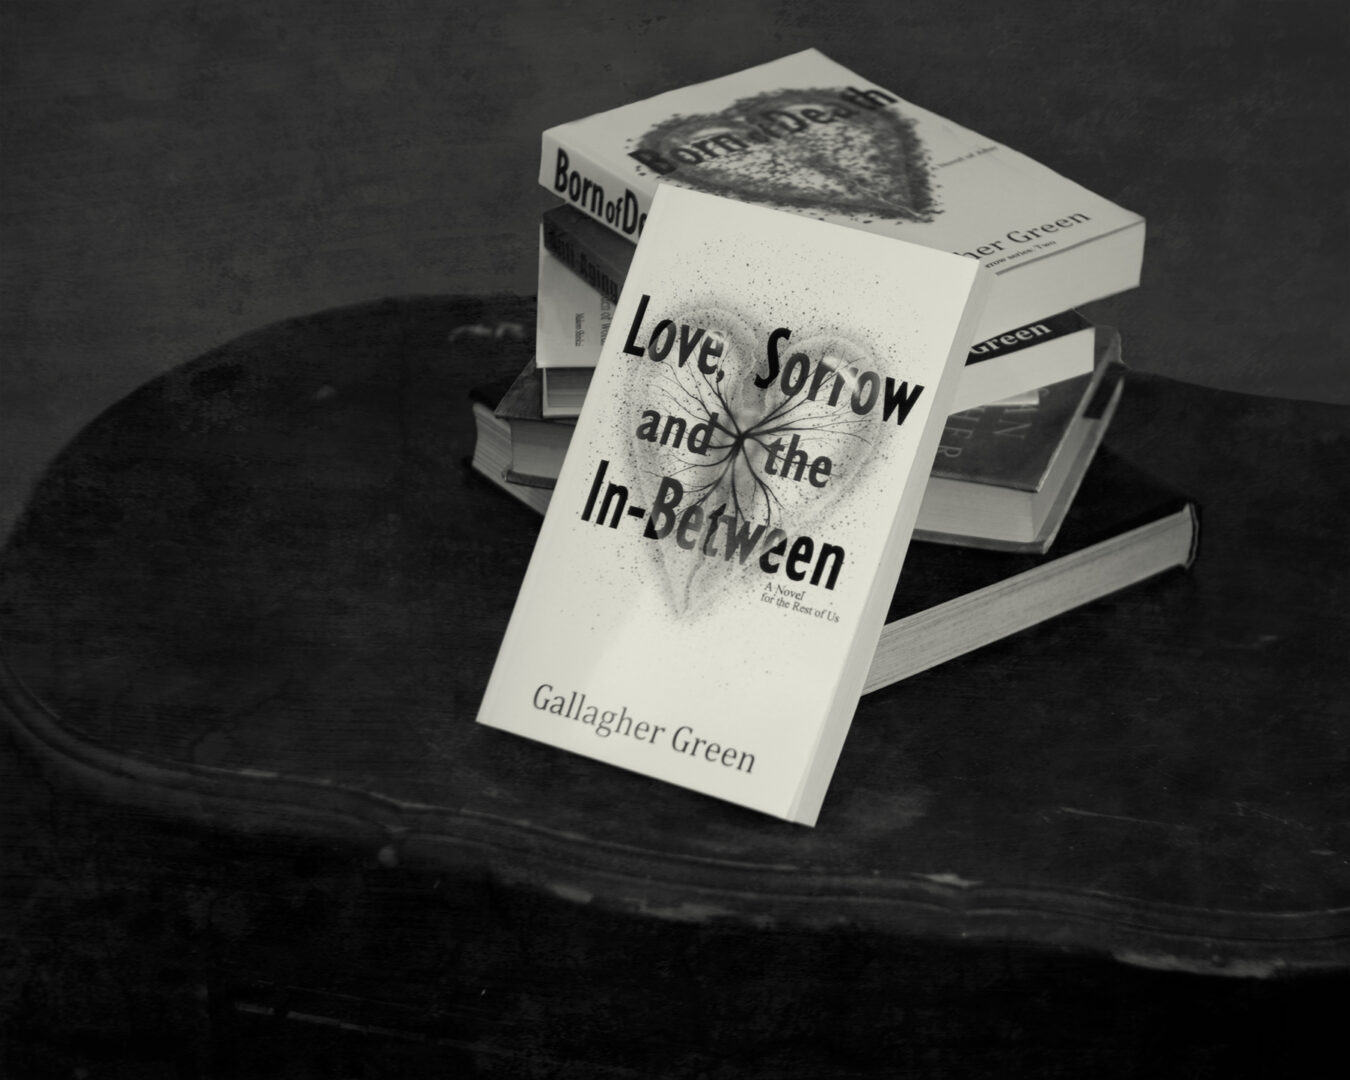 Born of Death
Born of De
her Green
Green
Love, Sorrow
and the
In-Between
A Novel
for the Rest of Us
Gallagher Green